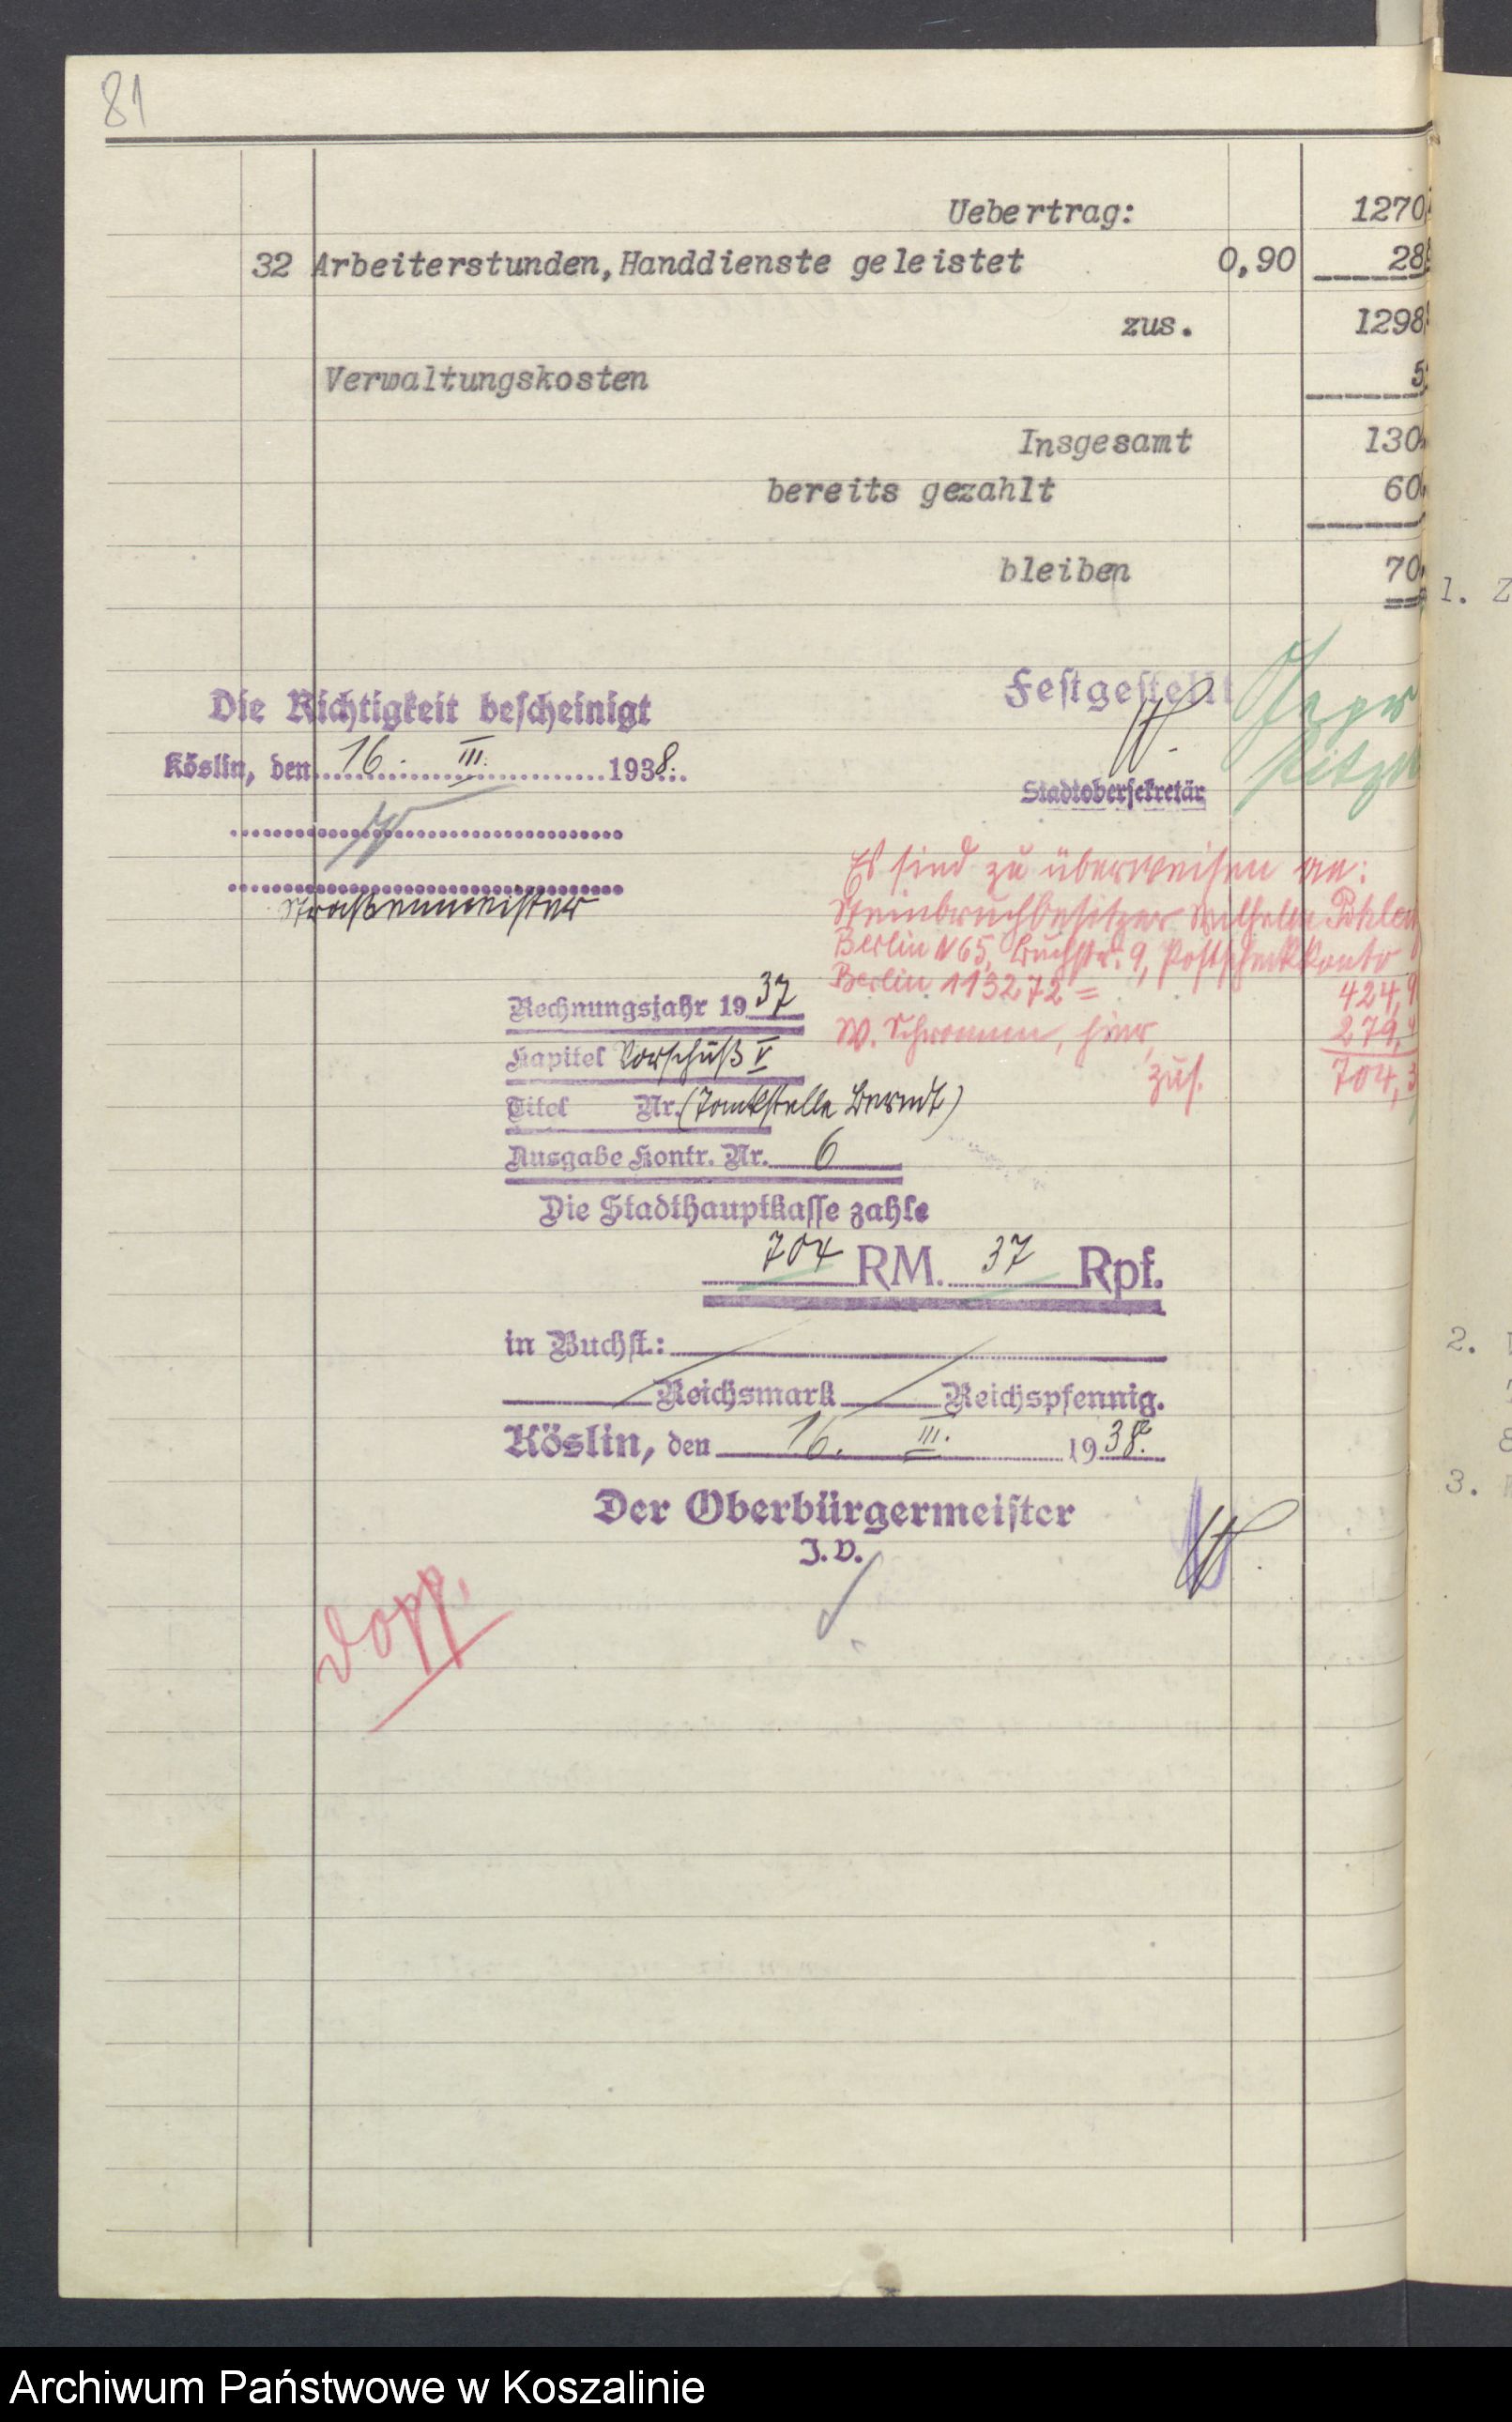 81
Uebertrag: 1270,
32 Arbeiterstunden, Handdienste geleistet 0,90 28,
zus. 1298,
Verwaltungskosten 5,
Insgesamt 130
bereits gezahlt 60
bleiben 70
Die Richtigkeit bescheinigt
Köslin, den 16. III. 1938.
Straßenmeister
Festgestellt
Stadtobersekretär
Es sind zu überweisen an:
Steinbruchbesitzer Wilhelm
Berlin N 65, 9, Postscheckkonto
Berlin 113272 = 424,9
W. Schramm, hier, 279,4
zus. 704,3
Rechnungsjahr 1937
Kapitel Vorschuß V
Titel Nr. (Tankstelle Berndt)
Ausgabe Kontr. Nr. 6
Die Stadthauptkasse zahle
704 RM. 37 Rpf.
in Buchst.:
Reichsmark Reichspfennig.
Köslin, den 16. III. 1938.
Der Oberbürgermeister
J.V.
Dopp.
1. Z
2.
3.
Archiwum Państwowe w Koszalinie